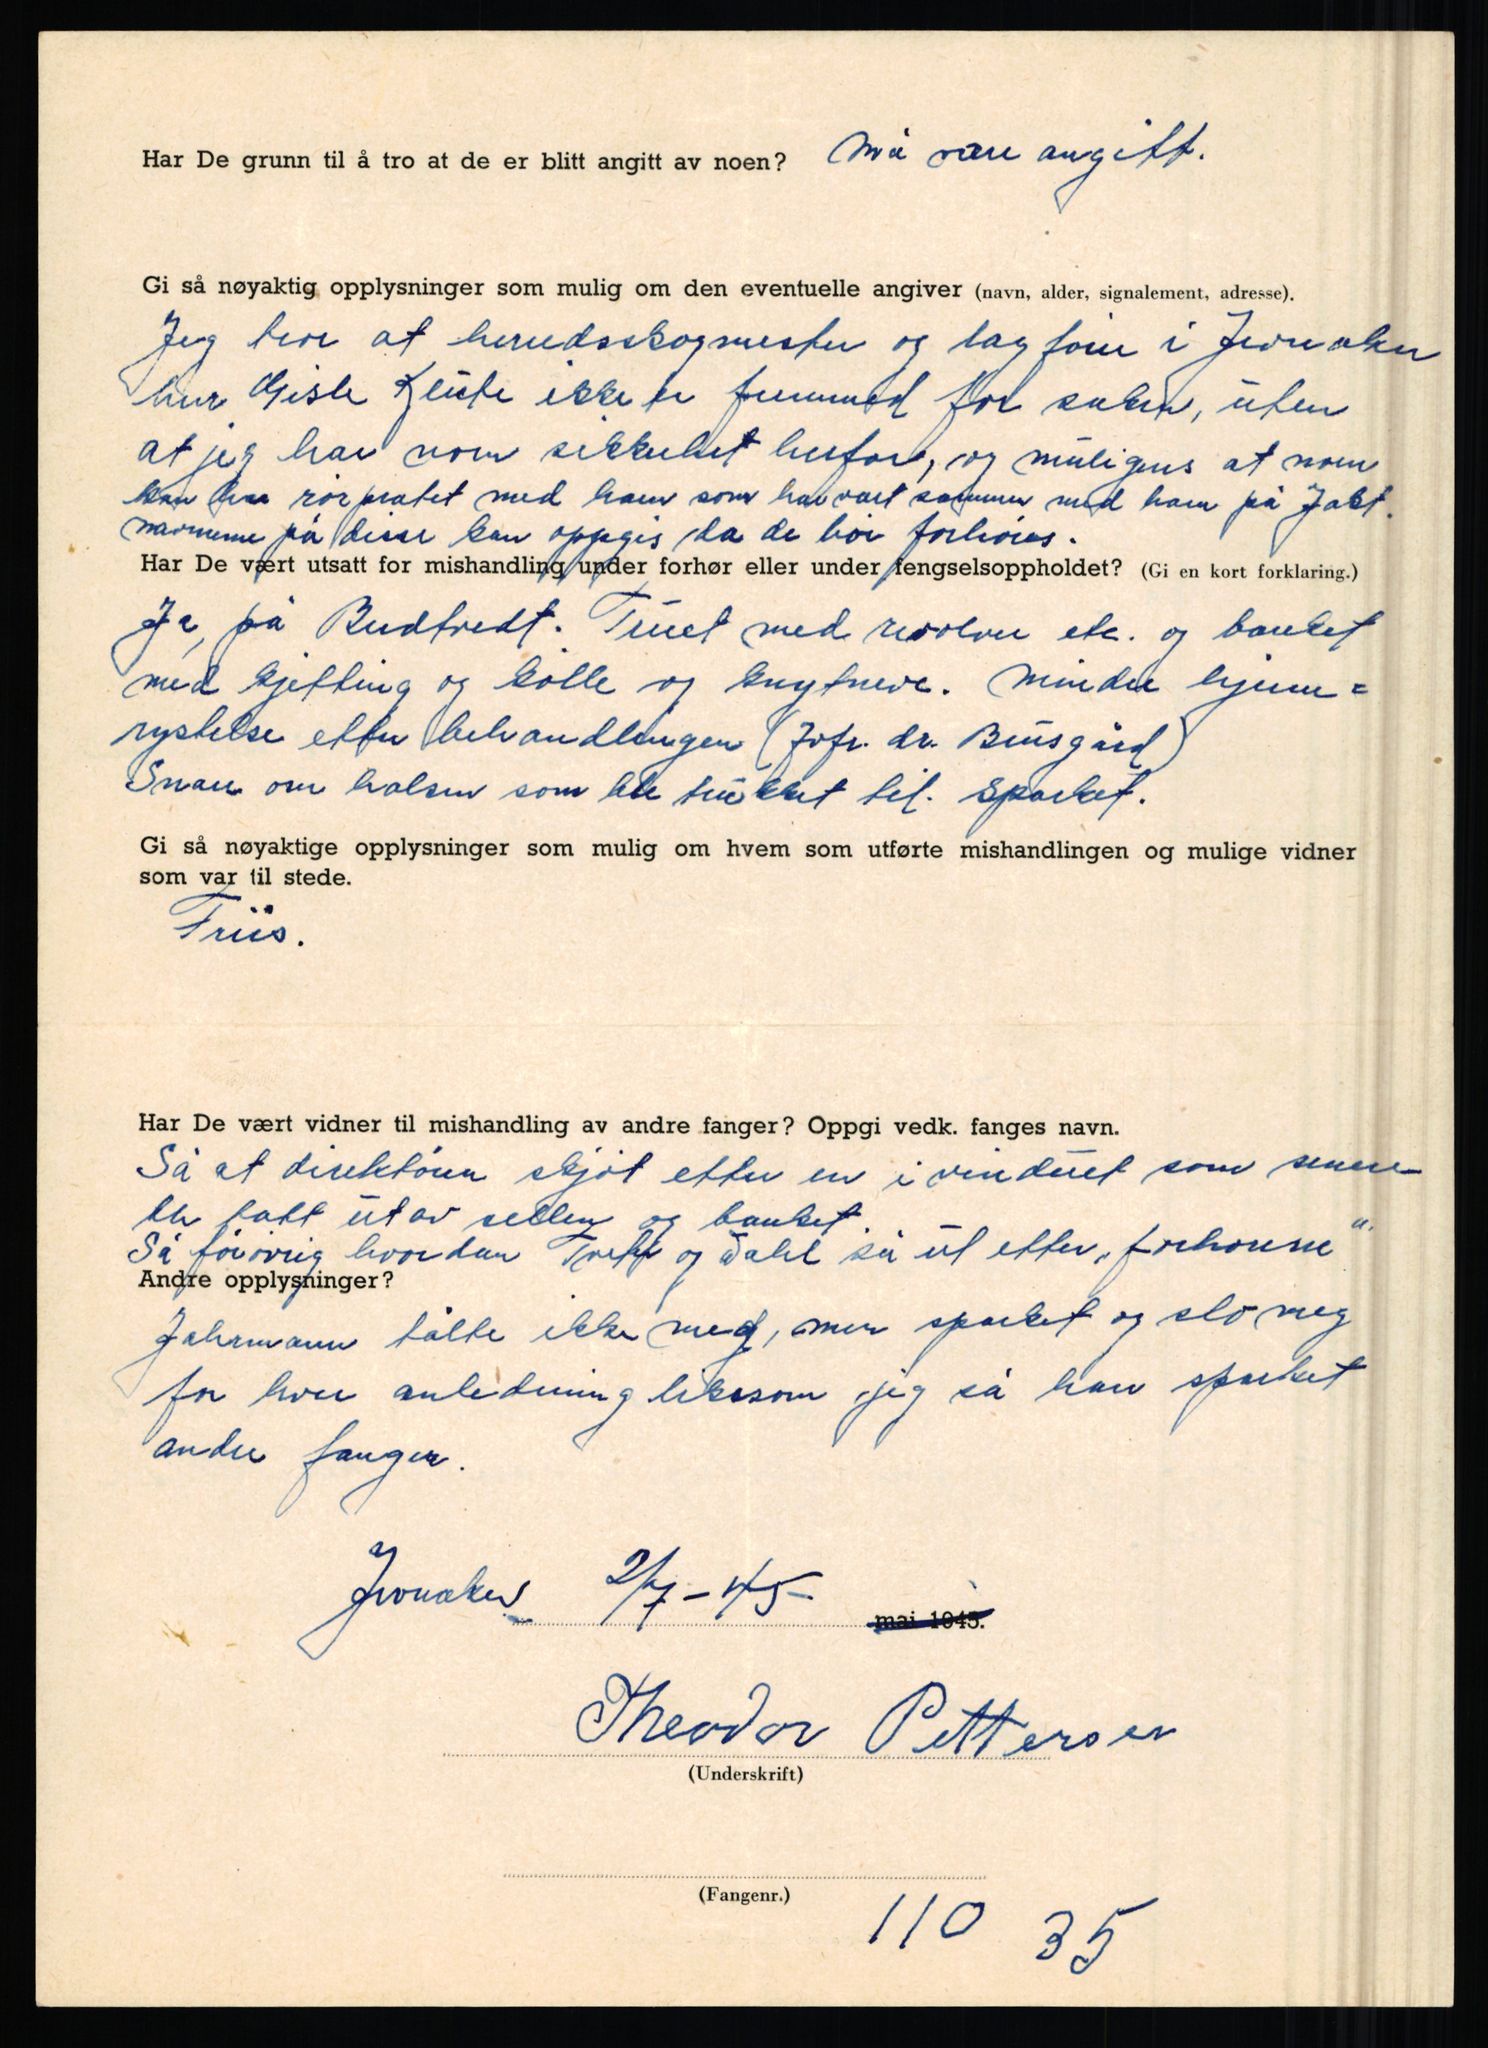 Har De grunn til å tro at de er blitt angitt av noen? Må være angitt.
Gi så nøyaktig opplysninger som mulig om den eventuelle angiver (navn, alder, signalement, adresse).
Jeg tror at herredsskogmester og lagfører i Jevnaker
herr Gisle ikke er fremmed for saken, uten
at jeg har noen sikkerhet herfor, og muligens at noen
kan ha rørpratet med ham som har vært sammen med ham på Jakt.
navnene på disse kan oppgis da de bør forhøres.
Har De vært utsatt for mishandling under forhør eller under fengselsoppholdet? (Gi en kort forklaring.)
Ja, på Bredtvedt. Truet med revolver etc. og banket
med kjetting og kølle og knyttneve. Mindre hjerne=
rystelse etter behandlingen (Jvfr. dr. Brusgård)
Snare om halsen som ble trukket til. Sparket.
Gi så nøyaktige opplysninger som mulig om hvem som utførte mishandlingen og mulige vidner
som var til stede.
Friis.
Har De vært vidner til mishandling av andre fanger? Oppgi vedk. fanges navn.
Så at direktøren skjøt etter en i vinduet som senere
ble tatt ut av cellen og banket.
Så forøvrig hvordan og Dahl så ut etter „forhørene"
Andre opplysninger?
Jahrmann tålte ikke meg, men sparket og slo meg
for hver anledning likesom jeg så han sparket
andre fanger.
Jevnaker 2/7-45- mai 1945.
Theodor Pettersen
(Underskrift)
(Fangenr.)
110 35